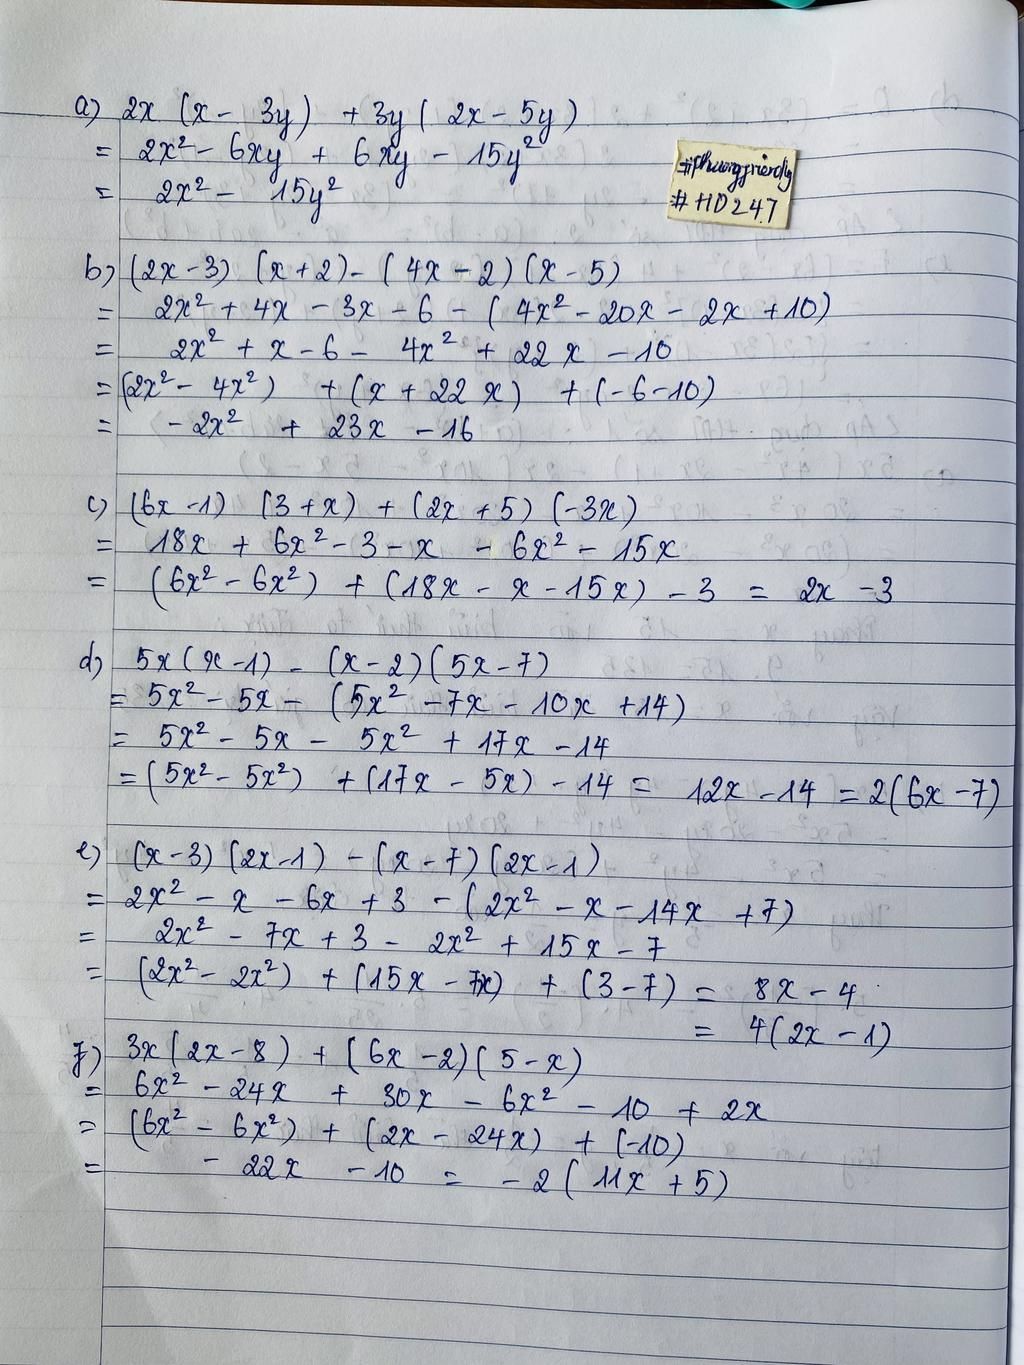 a) 2x (x - 3y) + 3y ( 2x - 5y )
= 2x² - 6xy + 6xy - 15y²
= 2x² - 15y²
#phuongfriendly
#HD247
b) (2x - 3) (x + 2) - ( 4x - 2 ) (x - 5)
= 2x² + 4x - 3x - 6 - ( 4x² - 20x - 2x + 10)
= 2x² + x - 6 - 4x² + 22x - 10
= (2x² - 4x²) + (x + 22x) + (-6-10)
= - 2x² + 23x - 16
c) (6x - 1) (3 + x) + (2x + 5) (-3x)
= 18x + 6x² - 3 - x - 6x² - 15x
= (6x² - 6x²) + (18x - x - 15x) - 3 = 2x - 3
d) 5x (x - 1) - (x - 2) (5x - 7)
= 5x² - 5x - (5x² - 7x - 10x + 14)
= 5x² - 5x - 5x² + 17x - 14
= (5x² - 5x²) + (17x - 5x) - 14 = 12x - 14 = 2(6x - 7)
e) (x - 3) (2x - 1) - (x - 7) (2x - 1)
= 2x² - x - 6x + 3 - (2x² - x - 14x + 7)
= 2x² - 7x + 3 - 2x² + 15x - 7
= (2x² - 2x²) + (15x - 7x) + (3 - 7) = 8x - 4
= 4(2x - 1)
f) 3x (2x - 8) + (6x - 2) (5 - x)
= 6x² - 24x + 30x - 6x² - 10 + 2x
= (6x² - 6x²) + (2x - 24x) + (-10)
= - 22x - 10 = - 2 ( 11x + 5)